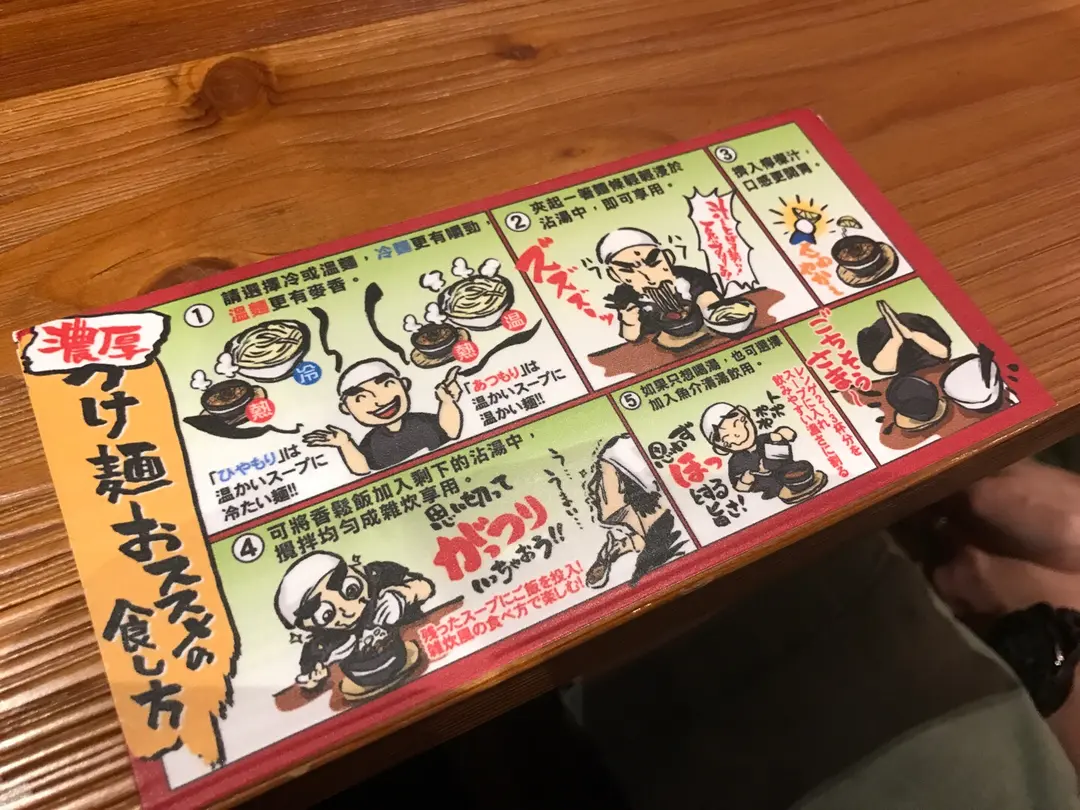 濃厚
つけ麺おススメの
食し方
①
請選擇冷或溫麵，冷麵更有嚼勁，
溫麵更有麥香。
冷
熱
溫
熱
「ひやもり」は
温かいスープに
冷たい麺!!
「あつもり」は
温かいスープに
温かい麺!!
②
夾起一箸麵條輕輕浸於
沾湯中，即可享用。
ズズズーッ
③
擠入檸檬汁，
口感更開胃。
④
可將香鬆飯加入剩下的沾湯中，
攪拌均勻成雜炊享用。
思い切って
がっつり
いちゃおう!!
うまい
残ったスープにご飯を投入!
雑炊風の食べ方で楽しむ!
⑤
如果只想喝湯，也可選擇
加入魚介清湯飲用。
思わず
ほっ
とする
旨さ!
レンゲに2～3杯分を
スープに入れ
飲みやすい濃さに割る
ごちそう
さまっ